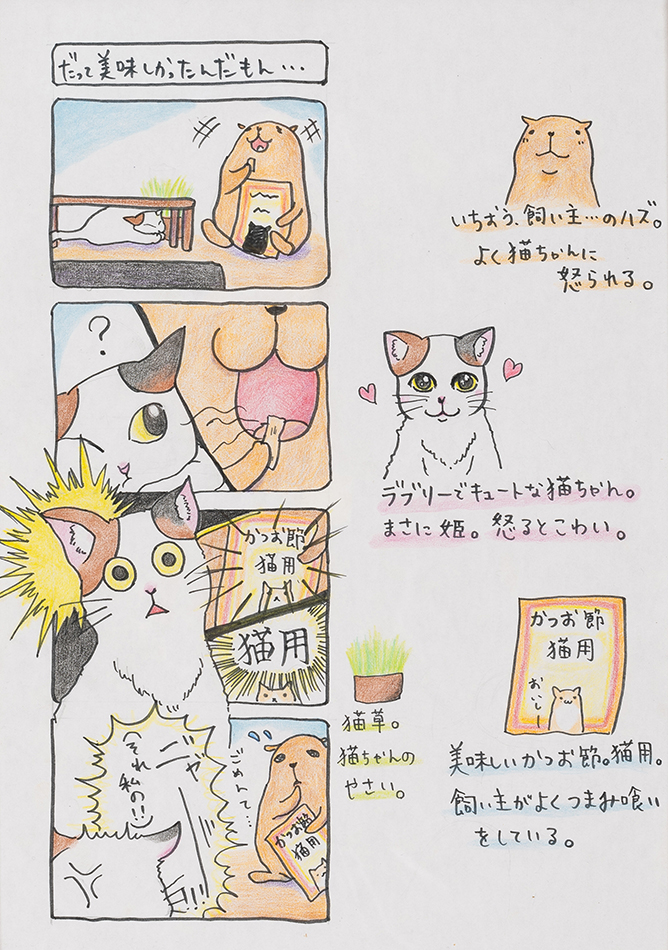 だって美味しかったんだもん・・・
?
かつお節
猫用
猫用
ニャ
(それ私の!!)
!!!
ごめんて…
かつお節
猫用
いちおう、飼い主…のハズ。
よく猫ちゃんに
怒られる。
ラブリーでキュートな猫ちゃん。
まさに姫。怒るとこわい。
猫草。
猫ちゃんの
やさい。
かつお節
猫用
おいしー
美味しいかつお節。猫用。
飼い主がよくつまみ喰い
をしている。